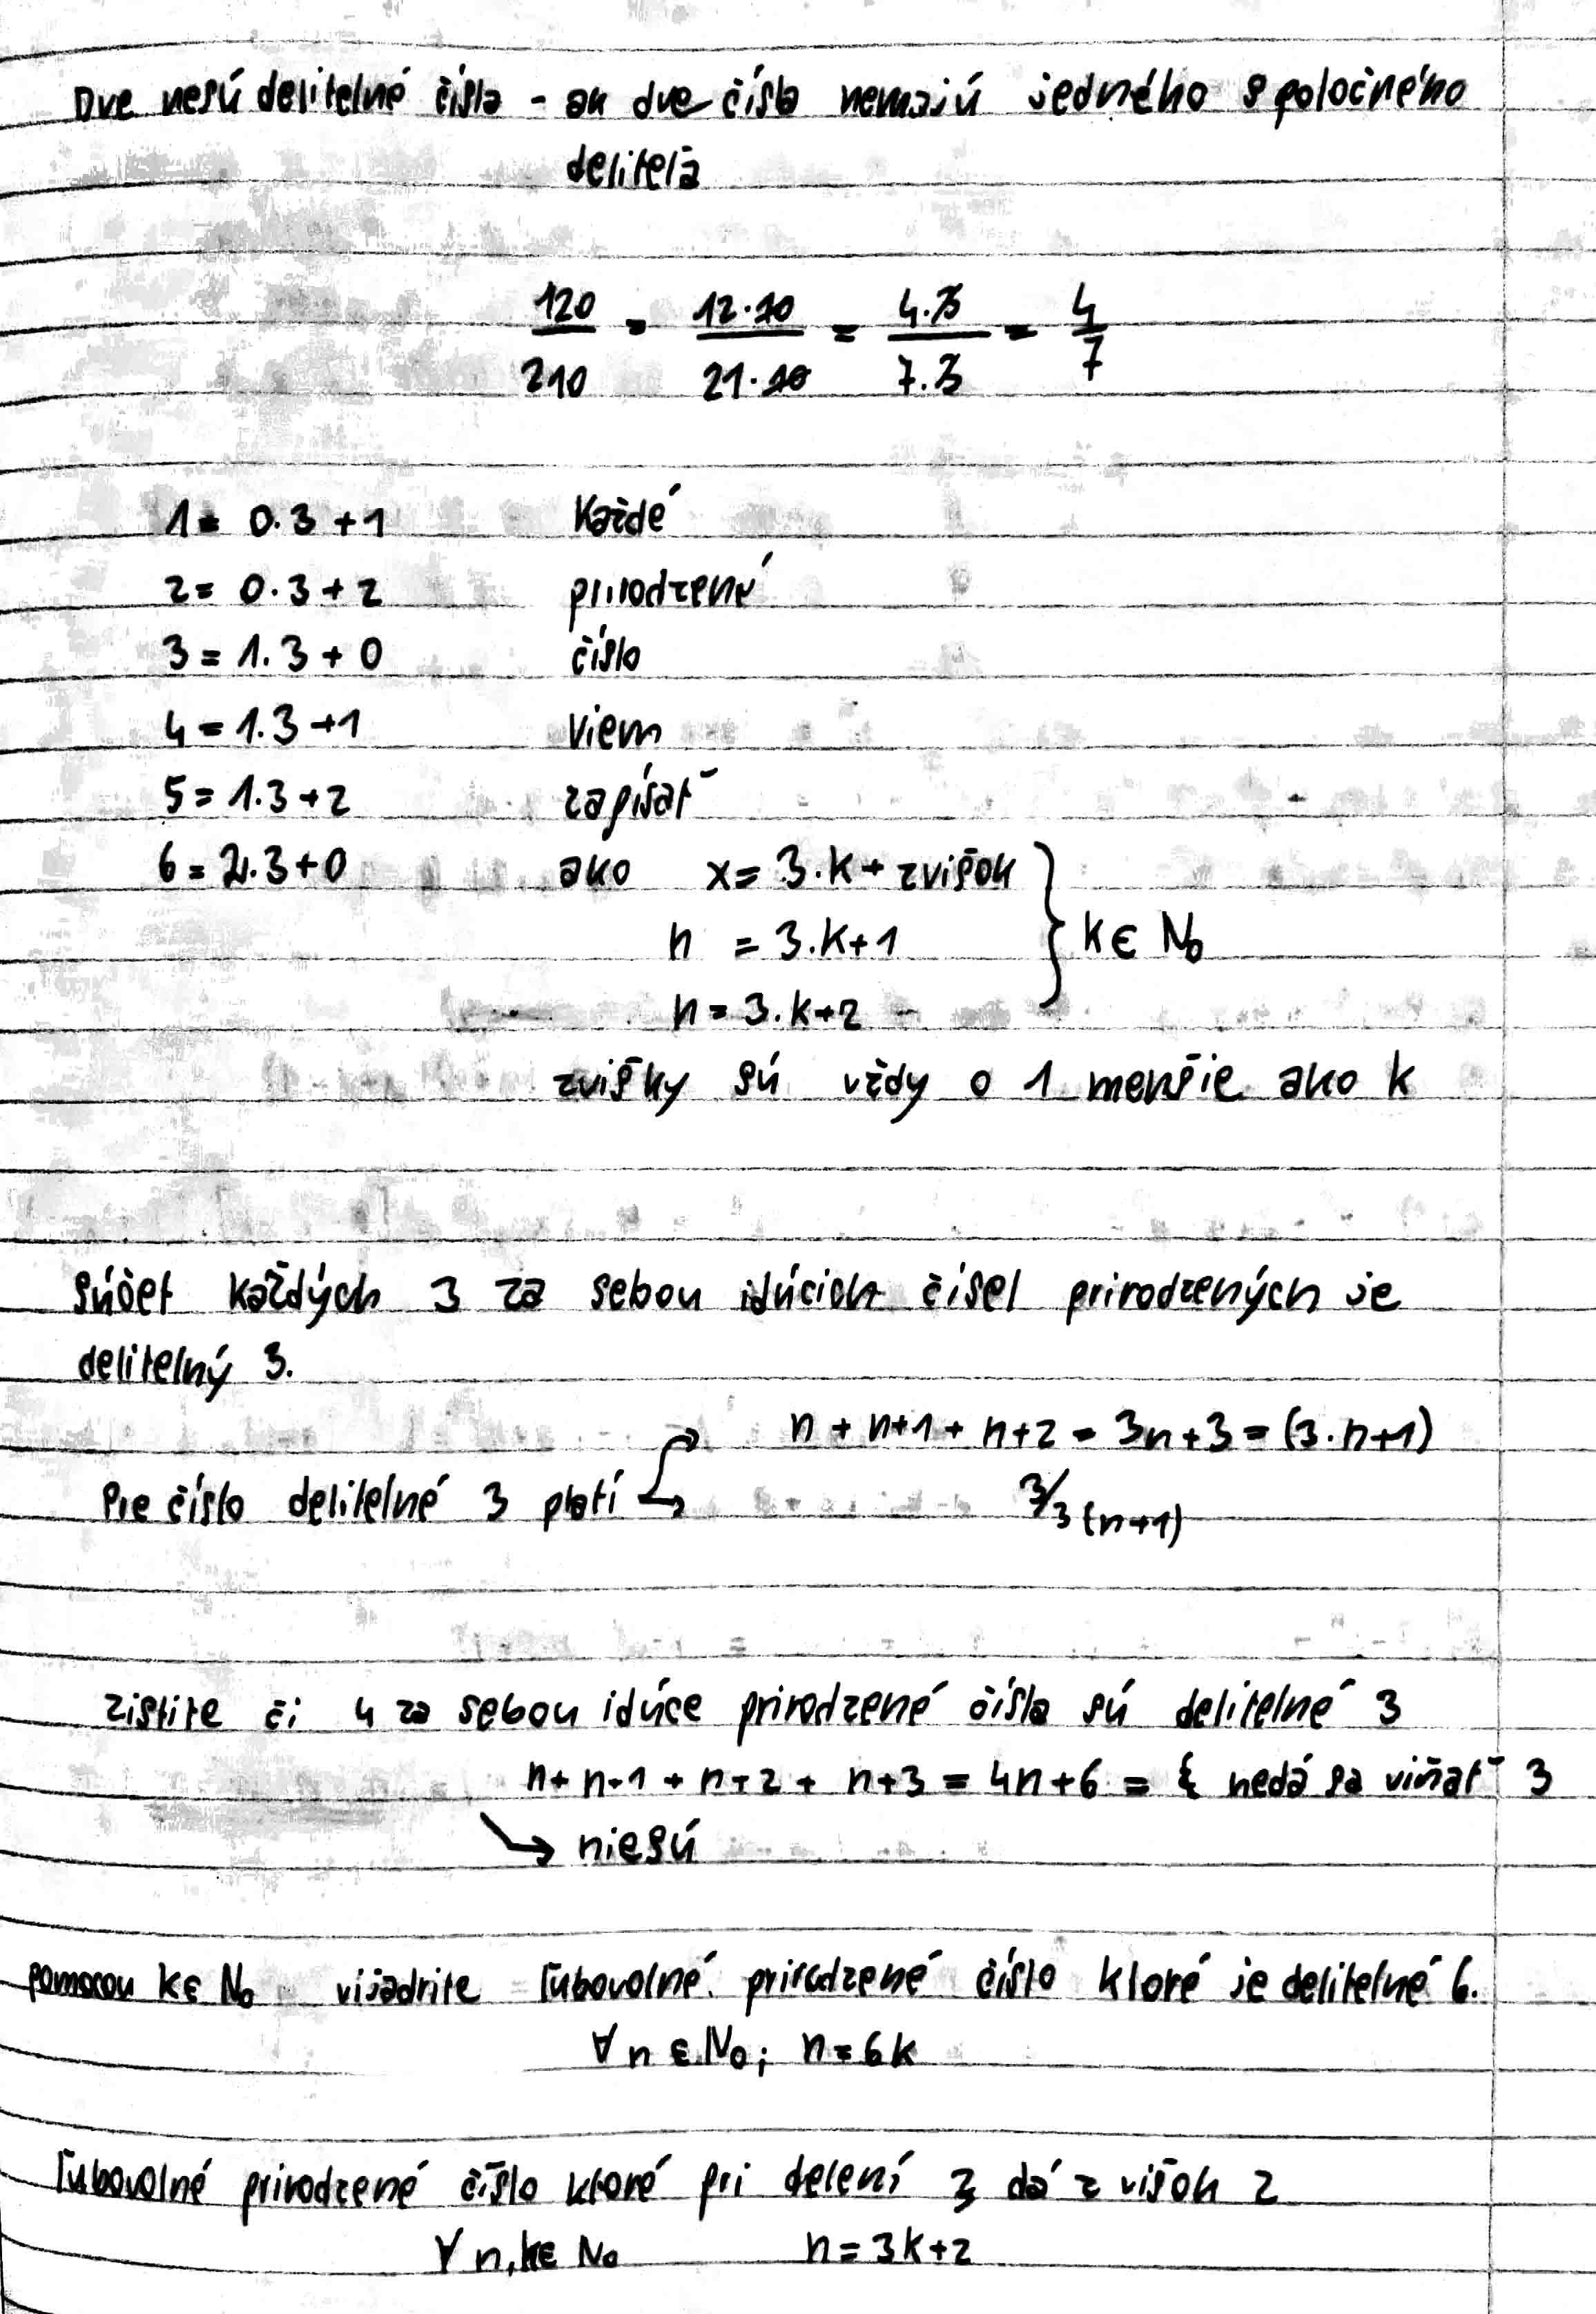 Dve nesú delitelné čísla - ak dve čísla nemajú jedného spoločného
delitela
120/210 = 12·10/21·10 = 4.3/7.3 = 4/7
1 = 0.3+1 Každé
2 = 0.3+2 prirodzené
3 = 1.3+0 číslo
4 = 1.3+1 viem
5 = 1.3+2 zapísať
6 = 2.3+0 ako x = 3.k + zvišok
n = 3.k+1 } k ∈ N₀
n = 3.k+2
zvišky sú vždy o 1 menšie ako k
Súčet každých 3 za sebou idúcich čísel prirodzených je
delitelný 3.
n + n+1 + n+2 = 3n+3 = (3.n+1)
Pre číslo delitelné 3 platí 3/3(n+1)
zistite či 4 za sebou idúce prirodzené čísla sú delitelné 3
n+ n+1 + n+2 + n+3 = 4n+6 = { nedá sa viňať 3
→ niesú
pomocou k∈ N₀ vijadrite ľubovolné prirodzené číslo ktoré je delitelné 6.
∀ n ∈ N₀; n=6k
ľubovolné prirodzené číslo ktoré pri delení 3 dá zvišok 2
∀ n,k∈ N₀ n=3k+2